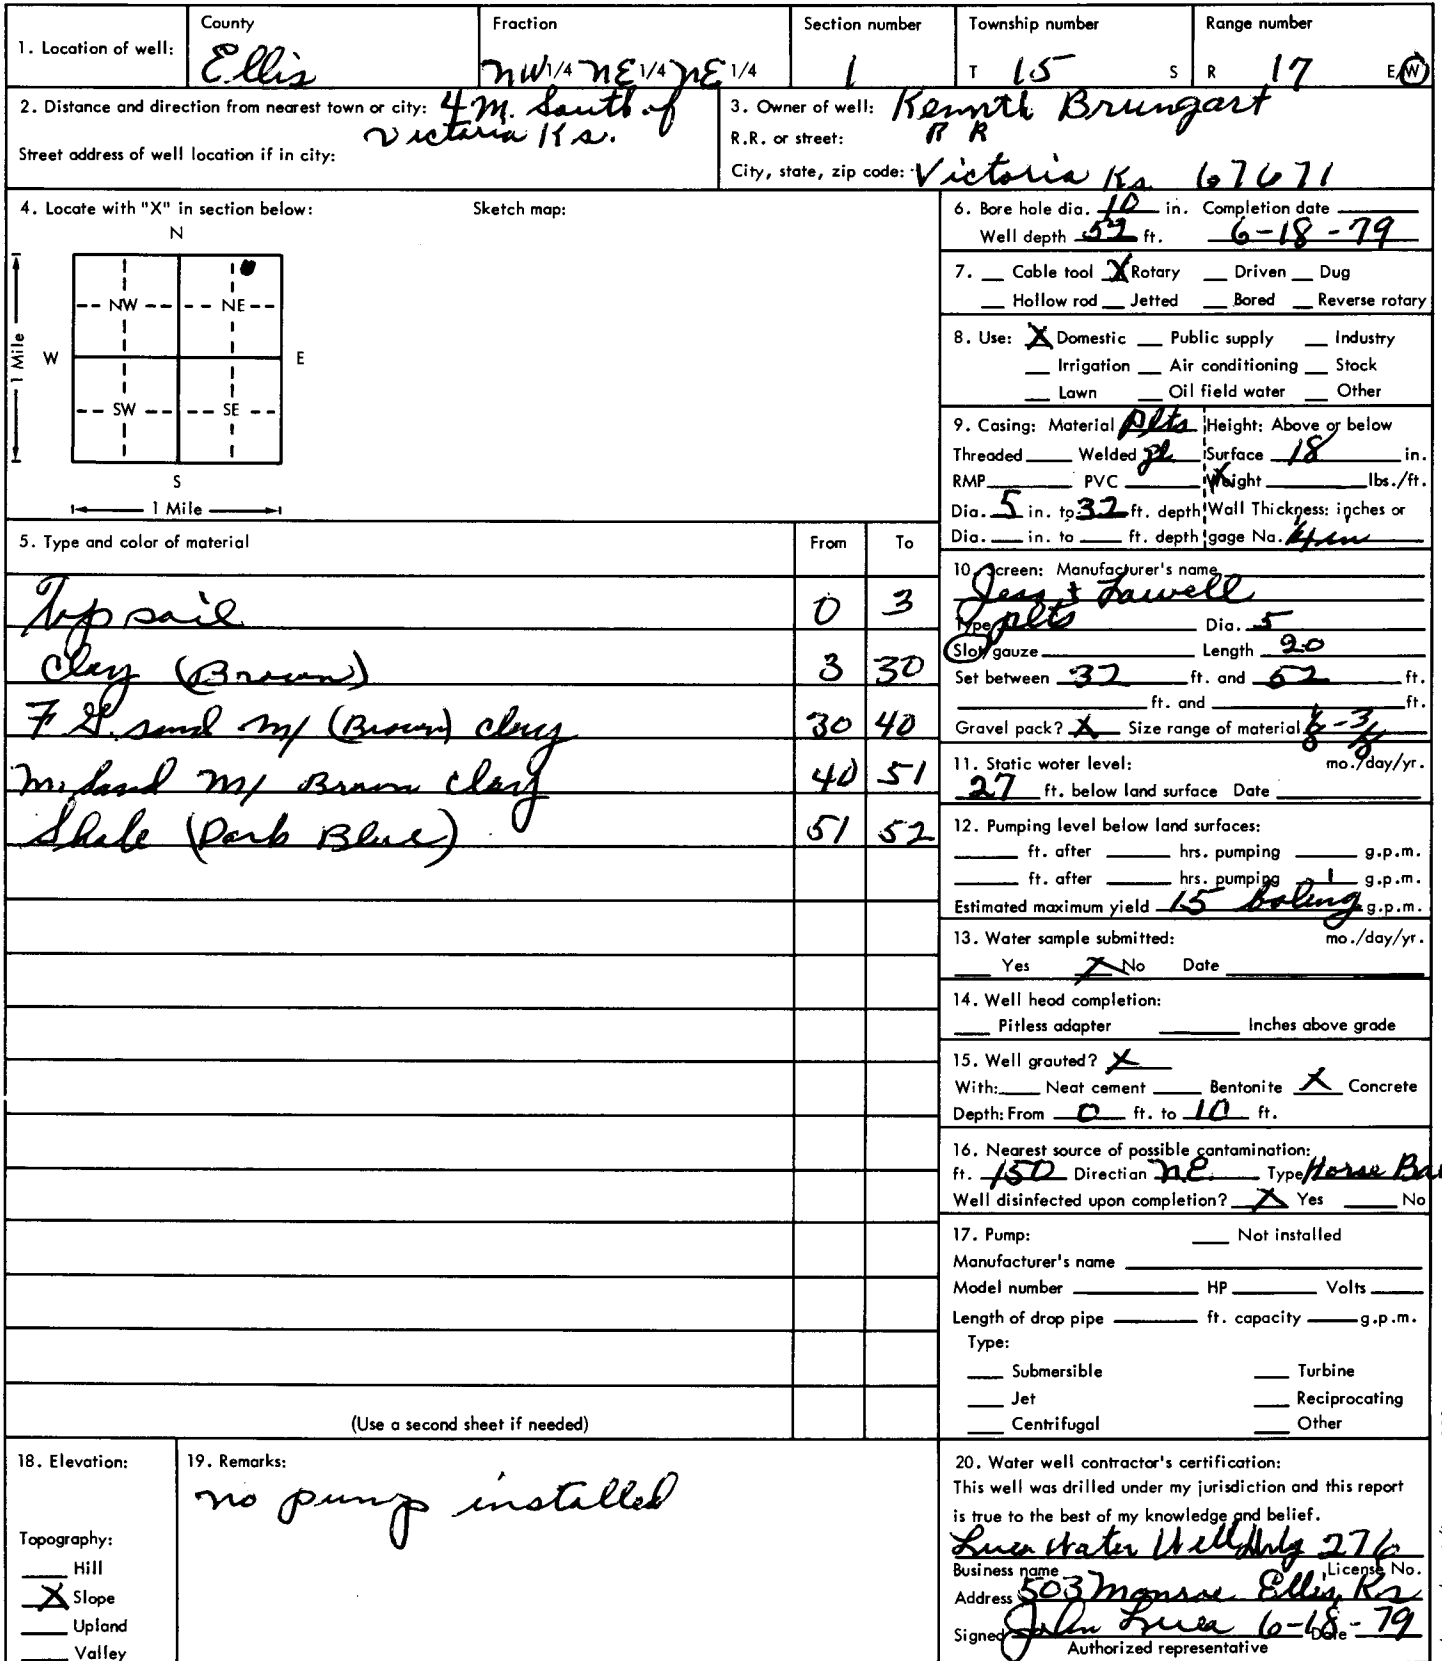 1. Location of well: County Ellis Fraction NW 1/4 NE 1/4 NE 1/4 Section number 1 Township number T 15 S Range number R 17 E/W
2. Distance and direction from nearest town or city: 4 M. South of
Victoria Ks.
Street address of well location if in city:
3. Owner of well: Kennth Brungart
R.R. or street: R R
City, state, zip code: Victoria Ks. 67671
4. Locate with "X" in section below: Sketch map:
N
NW NE
W E
1 Mile
SW SE
S
1 Mile
5. Type and color of material From To
Top soil 0 3
Clay (Brown) 3 30
F G. sand M/ (Brown) clay 30 40
M. sand M/ Brown Clay 40 51
Shale (Dark Blue) 51 52
(Use a second sheet if needed)
6. Bore hole dia. 10 in. Completion date
Well depth 52 ft. 6-18-79
7. Cable tool X Rotary Driven Dug
Hollow rod Jetted Bored Reverse rotary
8. Use: X Domestic Public supply Industry
Irrigation Air conditioning Stock
Lawn Oil field water Other
9. Casing: Material Plts Height: Above or below
Threaded Welded Surface 18 in.
RMP PVC Weight lbs./ft.
Dia. 5 in. to 32 ft. depth Wall Thickness: inches or
Dia. in. to ft. depth gage No.
10. Screen: Manufacturer's name
Jess & Lawell
Type Plts Dia. 5
Slot/gauze Length 20
Set between 32 ft. and 52 ft.
ft. and ft.
Gravel pack? X Size range of material 1/8 - 3/8
11. Static water level: mo./day/yr.
27 ft. below land surface Date
12. Pumping level below land surfaces:
ft. after hrs. pumping g.p.m.
ft. after hrs. pumping g.p.m.
Estimated maximum yield 15 Baling g.p.m.
13. Water sample submitted: mo./day/yr.
Yes X No Date
14. Well head completion:
Pitless adapter Inches above grade
15. Well grouted? X
With: Neat cement Bentonite X Concrete
Depth: From 0 ft. to 10 ft.
16. Nearest source of possible contamination:
ft. 150 Direction N.E. Type Horse
Well disinfected upon completion? X Yes No
17. Pump: Not installed
Manufacturer's name
Model number HP Volts
Length of drop pipe ft. capacity g.p.m.
Type:
Submersible Turbine
Jet Reciprocating
Centrifugal Other
18. Elevation:
Topography:
Hill
X Slope
Upland
Valley
19. Remarks:
no pump installed
20. Water well contractor's certification:
This well was drilled under my jurisdiction and this report
is true to the best of my knowledge and belief.
Water Well Drlg 276
Business name License No.
Address 503 Monroe Ellis, Ks
Signed John 6-18-79 Date
Authorized representative